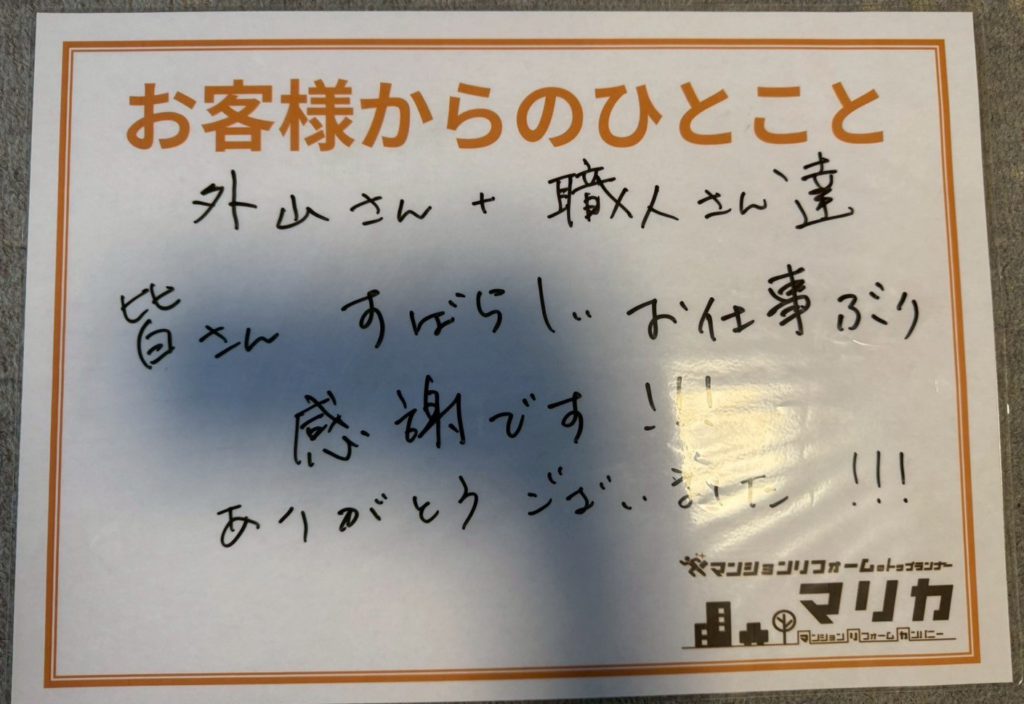 お客様からのひとこと
外山さん + 職人さん達
皆さん すばらしい お仕事ぶり
感謝です!!!
ありがとう ございました!!!
マンションリフォームのトップランナー
マリカ
マンションリフォームカンパニー